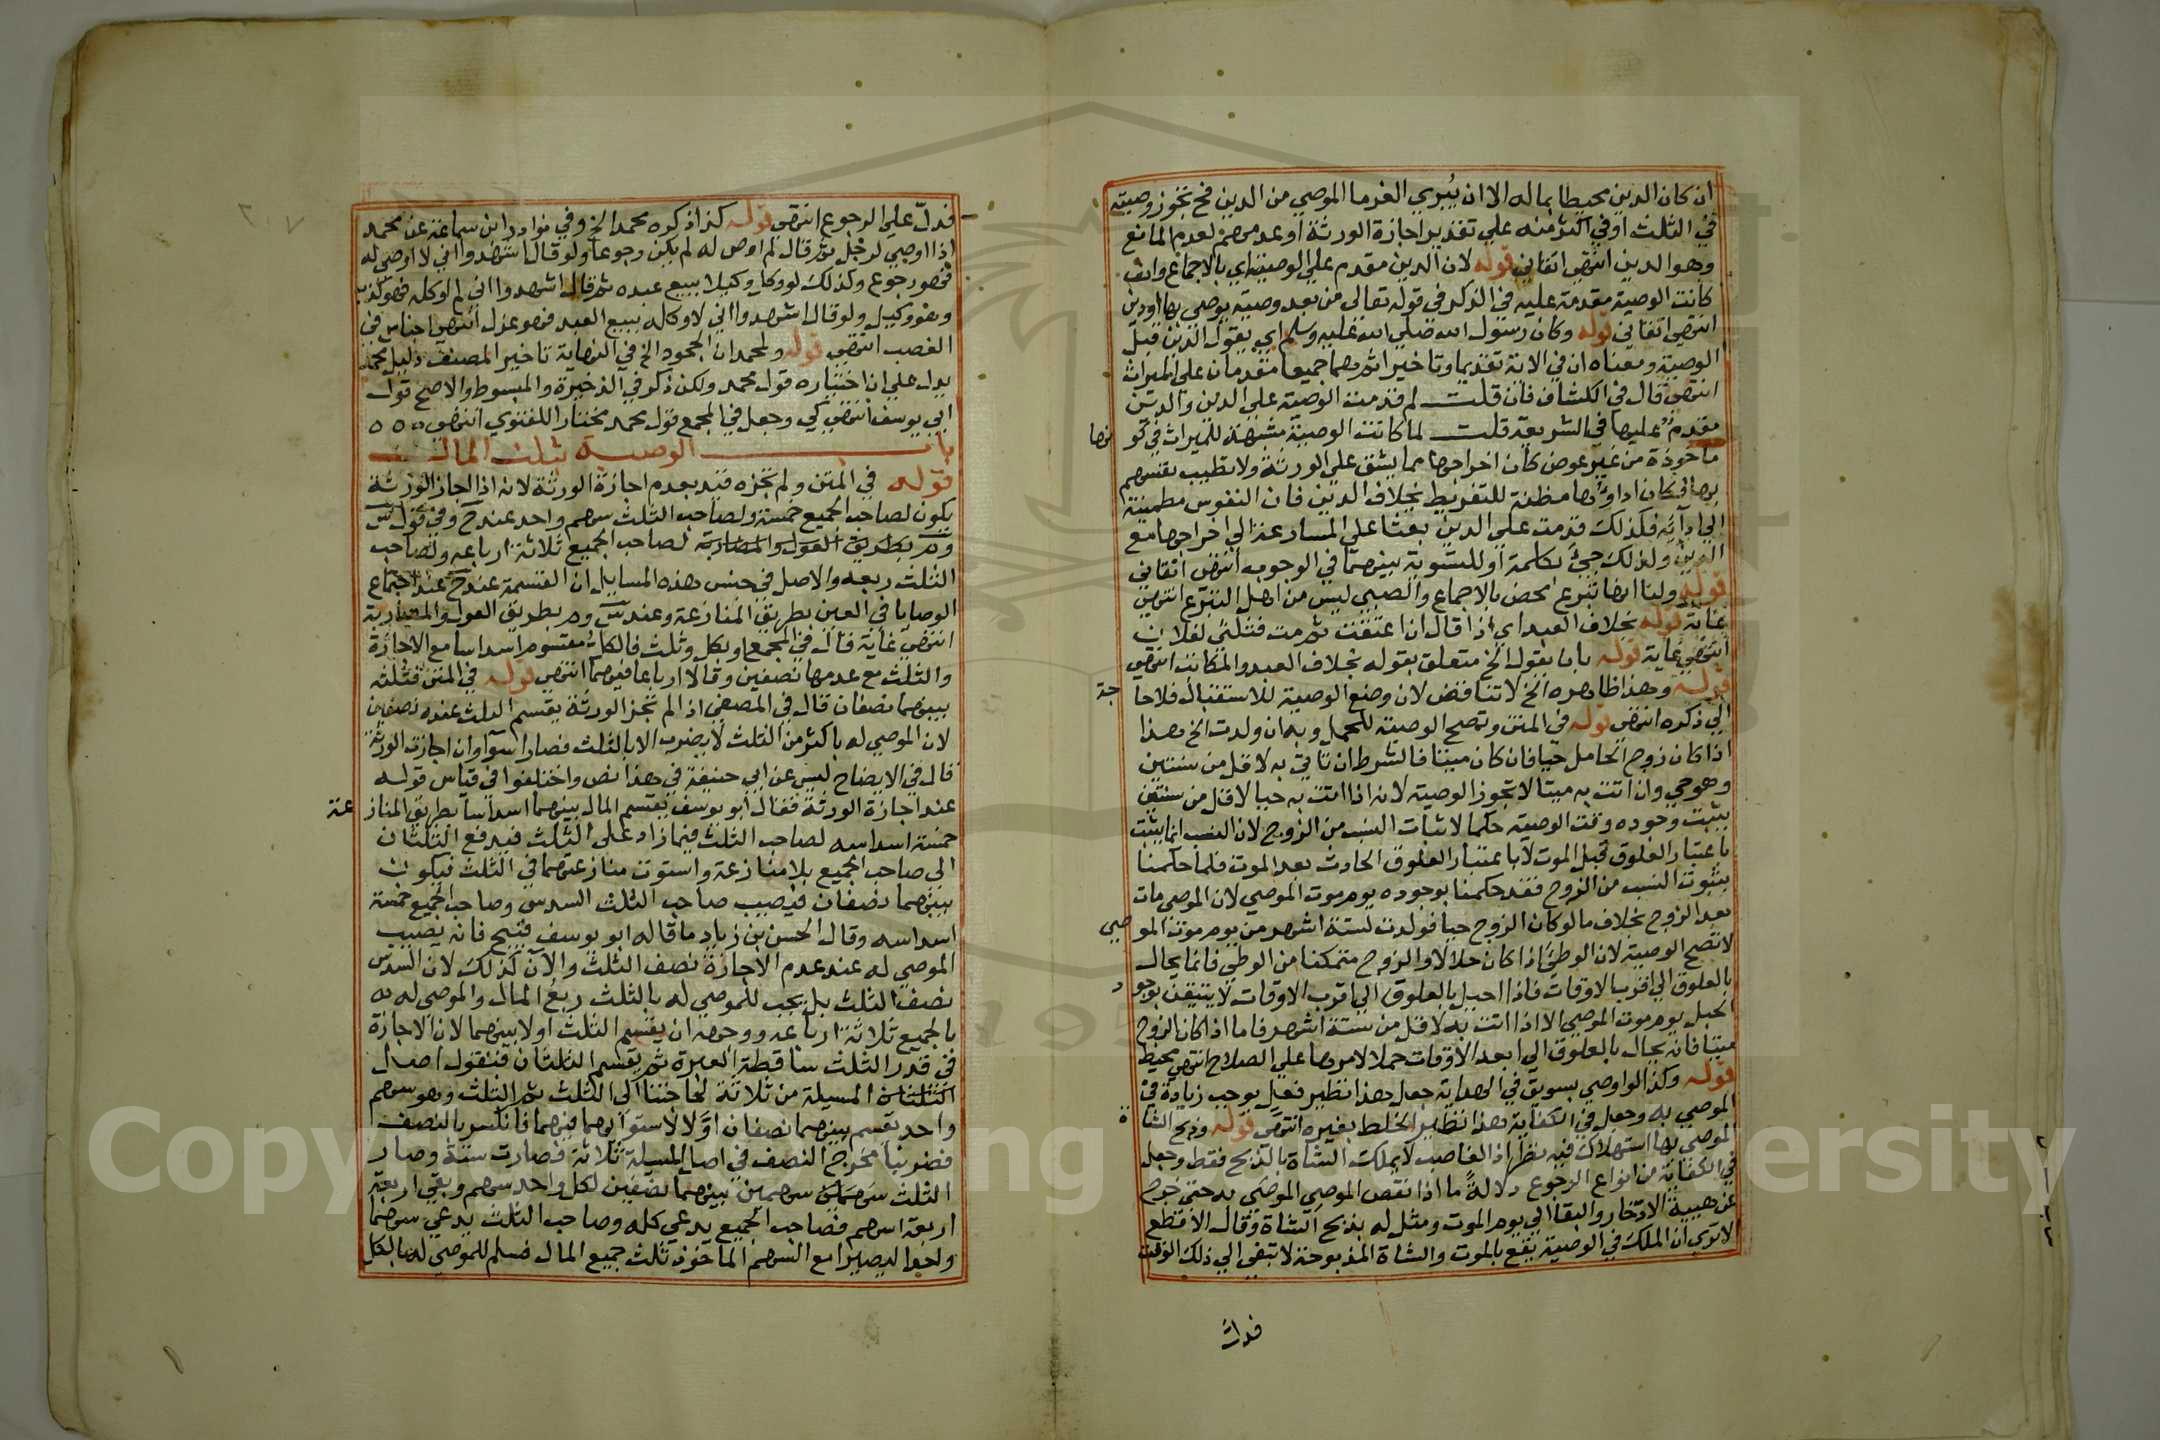 ان كان الدين محيطا بماله الا ان يبري الغرما الموصي من الدين فح تجوز وصيته
في الثلث او في اكثر منه علي تقدير اجازة الورثة او عدمهم لعدم المانع
وهو الدين انتهى اتقاني قوله لان الدين مقدم علي الوصية اي بالاجماع وان
كانت الوصية مقدمة عليه في الذكر في قوله تعالى من بعد وصية يوصي بها او دين
انتهي اتقاني قوله وكان رسول الله صلي الله عليه وسلم اي يقول الدين قبل
الوصية ومعناه ان في الاية تقديما وتاخيرا ثم هما جميعا مقدمان علي الميراث
انتهى قال في الكشاف فان قلت لم قدمت الوصية علي الدين والدين
مقدم عليها في الشريعة قلت لما كانت الوصية مشبهة للميراث في كونها
ماخوذة من غير عوض كان اخراجها مما يشق علي الورثة ولا تطيب نفسهم
بها فكان اداوها مظنة للتفريط بخلاف الدين فان النفوس مطمينة
الي ادآيه فلذلك قدمت علي الدين بعثا علي المسارعة الي اخراجها مع
الدين ولذلك جئ بكلمة او للتسوية بينهما في الوجوب انتهى اتقاني
قوله ولنا انها تبرع محض بالاجماع والصبي ليس من اهل التبرع انتهى
غاية قوله بخلاف العبد اي اذا قال اذا اعتقت ثم مت فثلثي لفلان
انتهي غاية قوله بان يقول الخ متعلق بقوله بخلاف العبد والمكاتب انتهى
قوله وهذا ظاهره الخ لا تناقض لان وضع الوصية للاستقبال فلا حاجة
الي ذكره انتهى قوله في المتن وتصح الوصية للحمل وبه ان ولدت الخ هذا
اذا كان زوج الحامل حيا فان كان ميتا فالشرط ان تاتي به لاقل من سنتين
وهو حي وان اتت به ميتا لا تجوز الوصية لانه اذا اتت به حيا لاقل من سنتين
يثبت وجوده وقت الوصية حكما لاثبات النسب من الزوج لان النسب انما يثبت
باعتبار العلوق قبل الموت لا باعتبار العلوق الحادث بعد الموت فلما حكمنا
بثبوت النسب من الزوج فقد حكمنا بوجوده يوم موت الموصي لان الموصي مات
بعد الزوج بخلاف ما لو كان الزوج حيا فولدت لستة اشهر من يوم موت الموصي
لا تصح الوصية لان الوطئ اذا كان حلالا والزوج متمكنا من الوطئ فانما يحال
بالعلوق الي اقرب الاوقات فاذا احيل بالعلوق الي اقرب الاوقات لا يتيقن بوجود
الحبل يوم موت الموصي الا اذا اتت به لاقل من ستة اشهر فاما اذا كان الزوج
ميتا فانه يحال بالعلوق الي ابعد الاوقات حملا لامرها علي الصلاح انتهي محيط
قوله وكذا لو اوصي بسويق في الهداية جعل هذا نظير فعل يوجب زيادة في
الموصي به وجعل في الكفاية هذا نظير الخلط بغيره انتهى قوله وذبح الشاة
الموصي بها استهلاك فيه نظر اذ الغاصب لا يملك الشاة بالذبح فقط وجعل
في الكفاية من انواع الرجوع دلالة ما اذا نقص الموصي الموصي به حتي خرج
عن هيية الادخار والبقا الي يوم الموت ومثل له بذبح الشاة وقال الاقطع
الا تري ان الملك في الوصية يقع بالموت والشاة المذبوحة لا تبقي الي ذلك الوقت
فدل
فدل علي الرجوع انتهى قوله كذا ذكره محمد الخ وفي نوادر ابن سماعة عن محمد
اذا اوصي لرجل ثم قال لم اوص له لم يكن رجوعا ولو قال اشهدوا اني لا اوصي له
فهو رجوع وكذلك لو وكل وكيلا ببيع عبده ثم قال اشهدوا اني لم اوكله فهو كذب
وهو وكيل ولو قال اشهدوا اني لا وكله ببيع العبد فهو عزل انتهى اجناس في
الغصب انتهى قوله ولمحمد ان الجحود الخ في النهاية تاخير المصنف دليل محمد
يدل علي ان اختياره قول محمد ولكن ذكر في الذخيرة والمبسوط والاصح قول
ابي يوسف انتهى كي وجعل في المجمع قول محمد مختارا للفتوي انتهى ٥٥٥
باب الوصية بثلث المال
قوله في المتن ولم تجزه قيد بعدم اجازة الورثة لانه اذا اجاز الورثة
يكون لصاحب الجميع خمسة ولصاحب الثلث سهم واحد عند ح وفي قول س
وم بطريق العول والمضاربة لصاحب الجميع ثلاثة ارباعه ولصاحب
الثلث ربعه والاصل في جنس هذه المسايل ان القسمة عند ح عند اجتماع
الوصايا في العين بطريق المنازعة وعند س وم بطريق العول والمضاربة
انتهى غاية قال في المجمع او بكل وثلث فالكل مقسوم اسداسا مع الاجازة
والثلث مع عدمها نصفين وقالا ارباعا فيهما انتهى قوله في المتن فثلثه
بينهما نصفان قال في المصفى اذا لم تجز الورثة يقسم الثلث عنده نصفين
لان الموصي له باكثر من الثلث لا يضرب الا بالثلث فصارا سوآ وان اجازت الورثة
قال في الايضاح ليس عن ابي حنيفة في هذا نص واختلفوا في قياس قوله
عند اجازة الورثة فقال ابو يوسف يقسم المال بينهما اسداسا بطريق المنازعة
خمسة اسداسه لصاحب الثلث فيما زاد على الثلث فيدفع الثلثان
الي صاحب الجميع بلا منازعة واستوت منازعتهما في الثلث فيكون
بينهما نصفان فيصيب صاحب الثلث السدس وصاحب الجميع خمسة
اسداسه وقال الحسن بن زياد ما قاله ابو يوسف قبيح فانه يصيب
الموصي له عند عدم الاجازة نصف الثلث والآن كذلك لان السدس
نصف الثلث بل يجب للموصي له بالثلث ربع المال والموصي له به
بالجميع ثلاثة ارباعه ووجهه ان يقسم الثلث اولا بينهما لان الاجازة
في قدر الثلث ساقطة العبرة ثم يقسم الثلثان فنقول اصل
المسيلة من ثلاثة لحاجتنا الي الثلث ثم الثلث وهو سهم
واحد يقسم بينهما نصفان اولا لاستوآيهما فيهما فانكسر بالنصف
فضربنا مخرج النصف في اصل المسيلة ثلاثة فصارت ستة وصار
الثلث سهمين بينهما نصفين لكل واحد سهم وبقي اربعة
اربعة اسهم فصاحب الجميع يدعي كله وصاحب الثلث يدعي سهما
واحدا ليصير مع السهم الماخوذ ثلث جميع المال فسلم للموصي له بالكل
Copy
ng
ersity